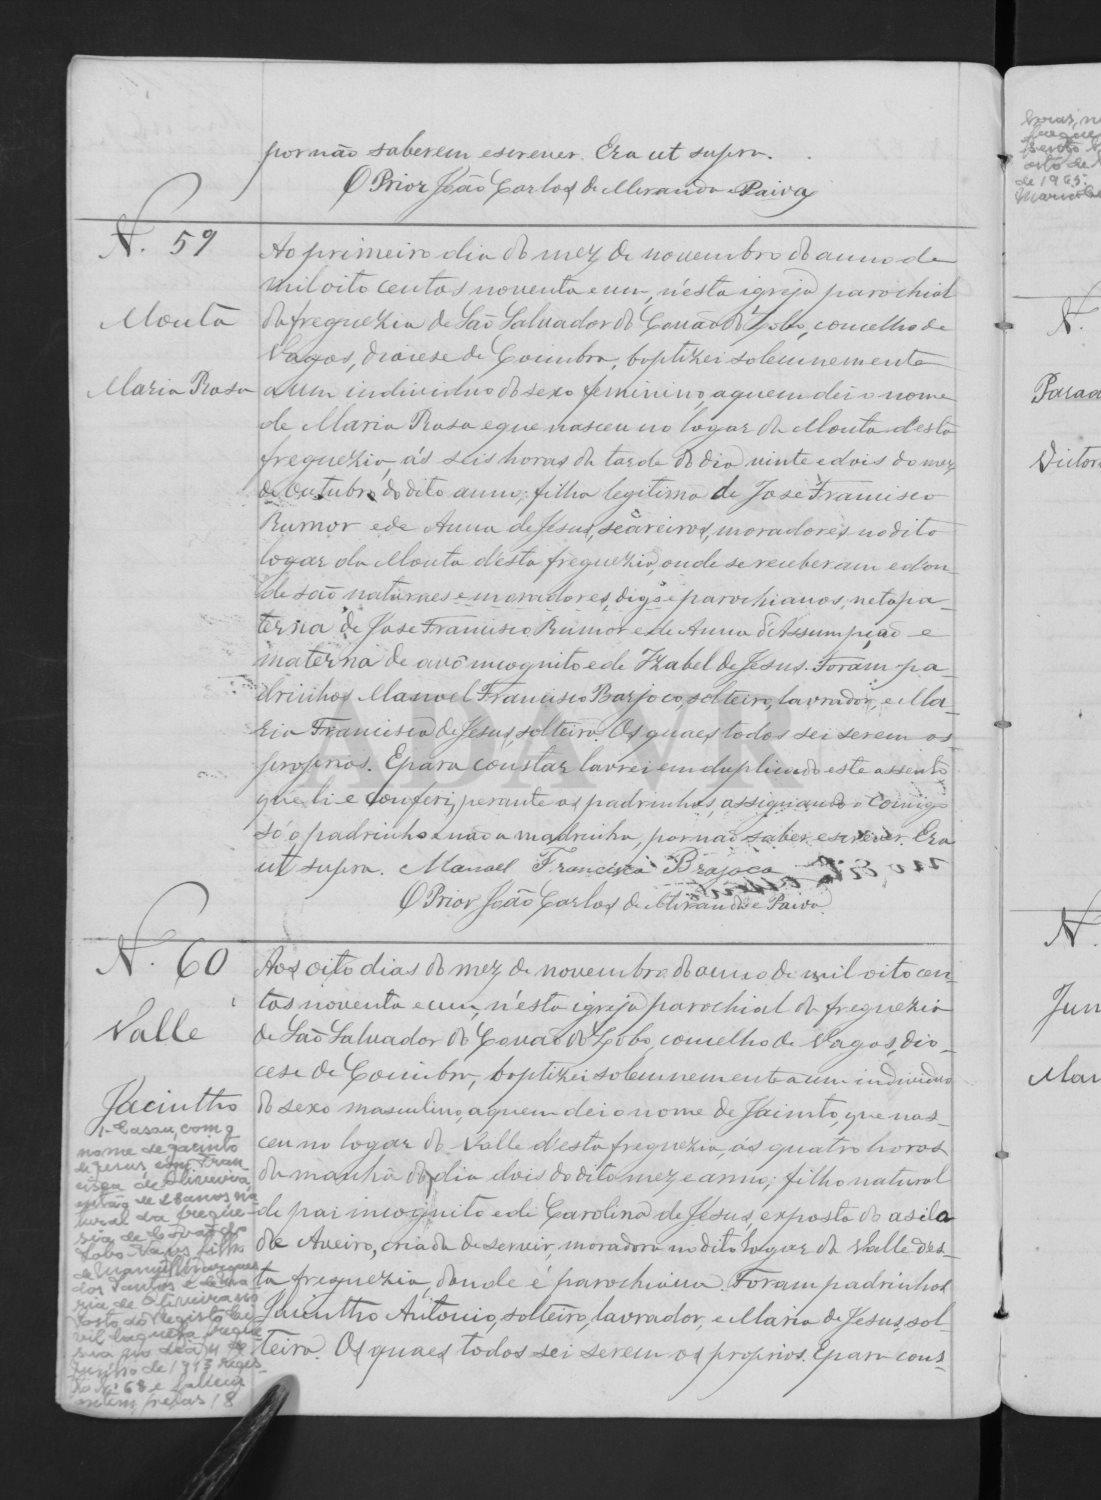 por não saberem escrever. Era ut supra.
O Prior João Carlos de Miranda e Paiva
N. 59
Mouta
Maria Rosa
Ao primeiro dia do mez de novembro do anno de
mil oito centos noventa e um, n'esta igreja parochial
da freguezia de São Salvador do Covão do Lobo, concelho de
Vagos, diocese de Coimbra, baptizei solemnemente
a um individuo do sexo feminino, a quem dei o nome
de Maria Rosa e que nasceu no logar da Mouta d'esta
freguezia, ás seis horas da tarde do dia vinte e dois do mez
de Outubro do dito anno; filha legitima de José Francisco
Rumor e de Anna de Jesus, seareiros, moradores no dito
logar da Mouta d'esta freguezia, onde se receberam e don-
de são naturaes e moradores, digo e parochianos, neta pa-
terna de José Francisco Rumor e de Anna d'Assumpção e
materna de avô incognito e de Izabel de Jesus. Foram pa-
drinhos Manoel Francisco Barjoco, solteiro, lavrador, e Ma-
ria Francisca de Jesus, solteira. Os quaes todos sei serem os
proprios. E para constar lavrei em duplicado este assento
que li e conferi, perante os padrinhos, assignando o comigo
só o padrinho e não a madrinha, por não saber escrever. Era
ut supra. Manoel Francisco Brajoco
O Prior João Carlos de Miranda e Paiva
N. 60
Valle
Jacintho
1- Casou, com o
nome de Jacinto
de Jesus, com Fran-
cisca de Oliveira
de 28 anos na-
tural da fregue-
sia de Covão do
Lobo Vagos, filha
de Manuel Marques
dos Santos e de Ma-
ria de Oliveira no
Posto do Registo Ci-
vil daquela fregue-
sia no dia
Junho de 1913 regis-
to Nº 68 e
Aos oito dias do mez de novembro do anno de mil oito cen-
tos noventa e um, n'esta igreja parochial da freguezia
de São Salvador do Covão do Lobo, concelho de Vagos, dio-
cese de Coimbra, baptizei solemnemente a um individuo
do sexo masculino, a quem dei o nome de Jacinto, que nas-
ceu no logar do Valle d'esta freguezia, ás quatro horas
da manhã do dia dois do dito mez e anno; filho natural
de pai incognito e de Carolina de Jesus, exposta do asilo
de Aveiro, criada de servir, moradora no dito logar do Valle d'es-
ta freguezia, donde é parochiana. Foram padrinhos
Jacintho Antonio, solteiro, lavrador, e Maria de Jesus, sol-
teira. Os quaes todos sei serem os proprios. E para cons-
de 1965
N.
N.
ADAVR